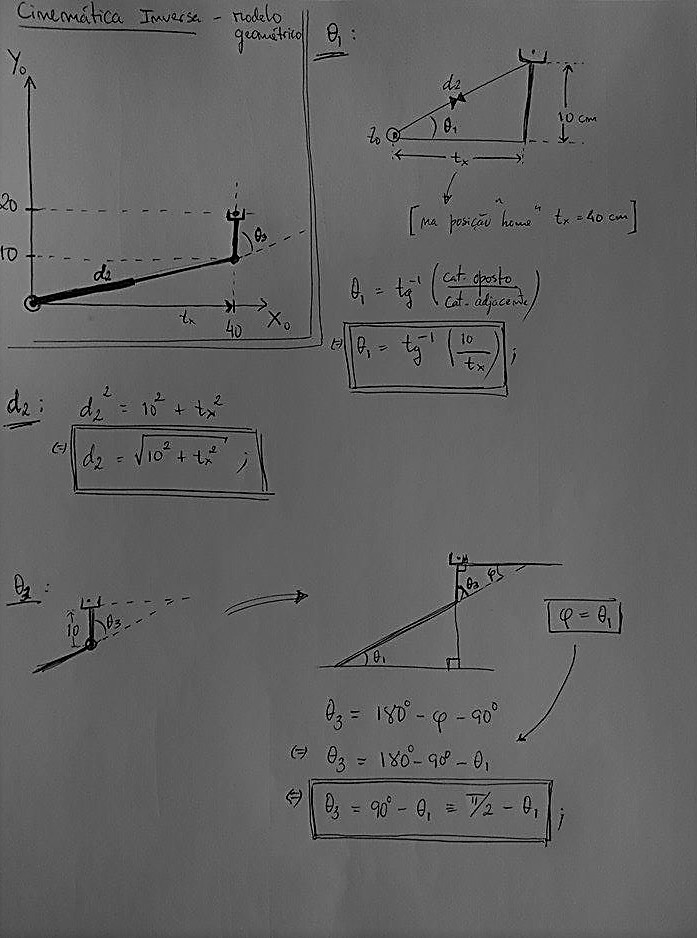 Cinemática Inversa - modelo
geométrico
Y₀
20
10
d2
θ3
tx
40
X₀
θ1 :
d2
z₀
θ1
10 cm
tx
[ na posição "home" tx = 40 cm ]
θ1 = tg⁻¹ ( cat. oposto / cat. adjacente )
(=) θ1 = tg⁻¹ ( 10 / tx ) ;
d2 : d2² = 10² + tx²
(=) d2 = √(10² + tx²) ;
θ3 :
10
θ3
φ
θ3
θ1
φ = θ1
θ3 = 180° - φ - 90°
(=) θ3 = 180° - 90° - θ1
(=) θ3 = 90° - θ1 ≡ π/2 - θ1 ;